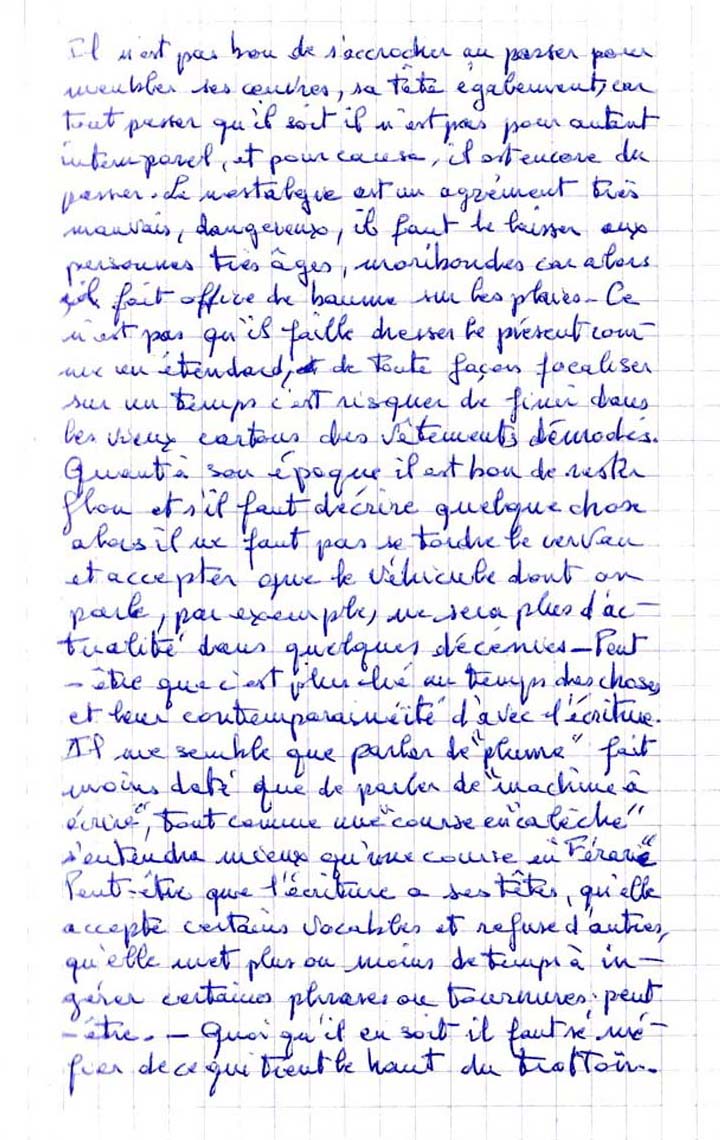 Il n'est pas bon de s'accrocher au passer pour
meubler ses œuvres, sa tête également, car
tout passer qu'il soit il n'est pas pour autant
intemporel, et pour cause, il est encore du
passer. Le nostalgie est un agrément très
mauvais, dangereux, il faut le laisser aux
personnes très âges, moribondes car alors
il fait office de baume sur les plaies - Ce
n'est pas qu'il faille dresser le présent com-
me un étendard, et de toute façon focaliser
sur un temps c'est risquer de finir dans
les vieux cartons des vêtements démodés.
Quant à son époque il est bon de rester
flou et s'il faut décrire quelque chose
alors il ne faut pas se tordre le cerveau
et accepter que le véhicule dont on
parle, par exemple, ne sera plus d'ac-
tualité dans quelques décennies - Peut
-être que c'est plus lié au temps des choses
et leur contemporainéité d'avec l'écriture.
Il me semble que parler de "plume" fait
moins daté que de parler de "machine à
écrire", tout comme une "course en calèche"
s'entendra mieux qu'une course en "Férarie"
Peut-être que l'écriture a ses têtes, qu'elle
accepte certains vocables et refuse d'autres,
qu'elle met plus ou moins de temps à in-
gérer certaines phrases ou tournures. peut
-être. - Quoi qu'il en soit il faut se mé-
fier de ce qui tient le haut du trottoir..